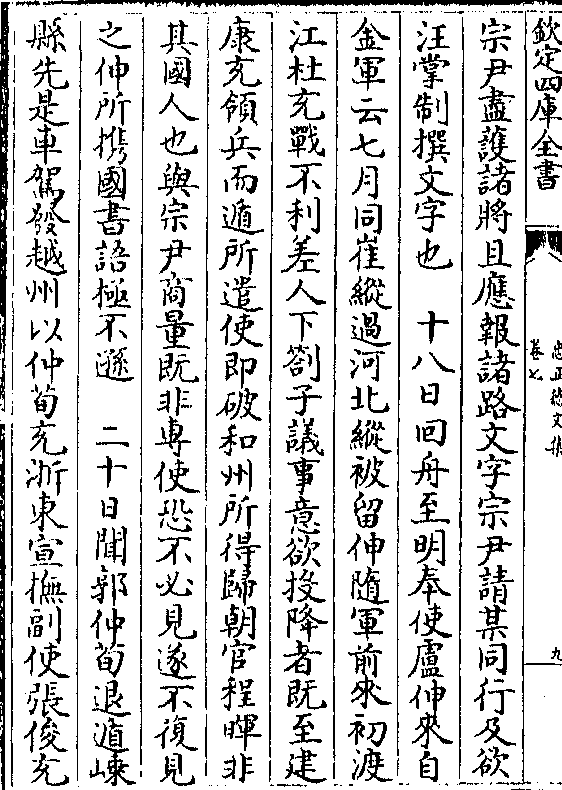 欽定四庫全書
忠正德文集
卷七
九
宗尹盡護諸將且應報諸路文字宗尹請某同行及欲
汪掌制撰文字也　十八日回舟至明奉使盧伸來自
金軍云七月同崔縱過河北縱被留伸隨軍前來初渡
江杜充戰不利差人下劄子議事意欲投降者既至建
康充領兵而遁所遣使即破和州所得歸朝官程暉非
其國人也與宗尹商量既非專使恐不必見遂不復見
之伸所携國書語極不遜　二十日聞郭仲荀退遁嵊
縣先是車駕發越州以仲荀充浙東宣撫副使張俊充